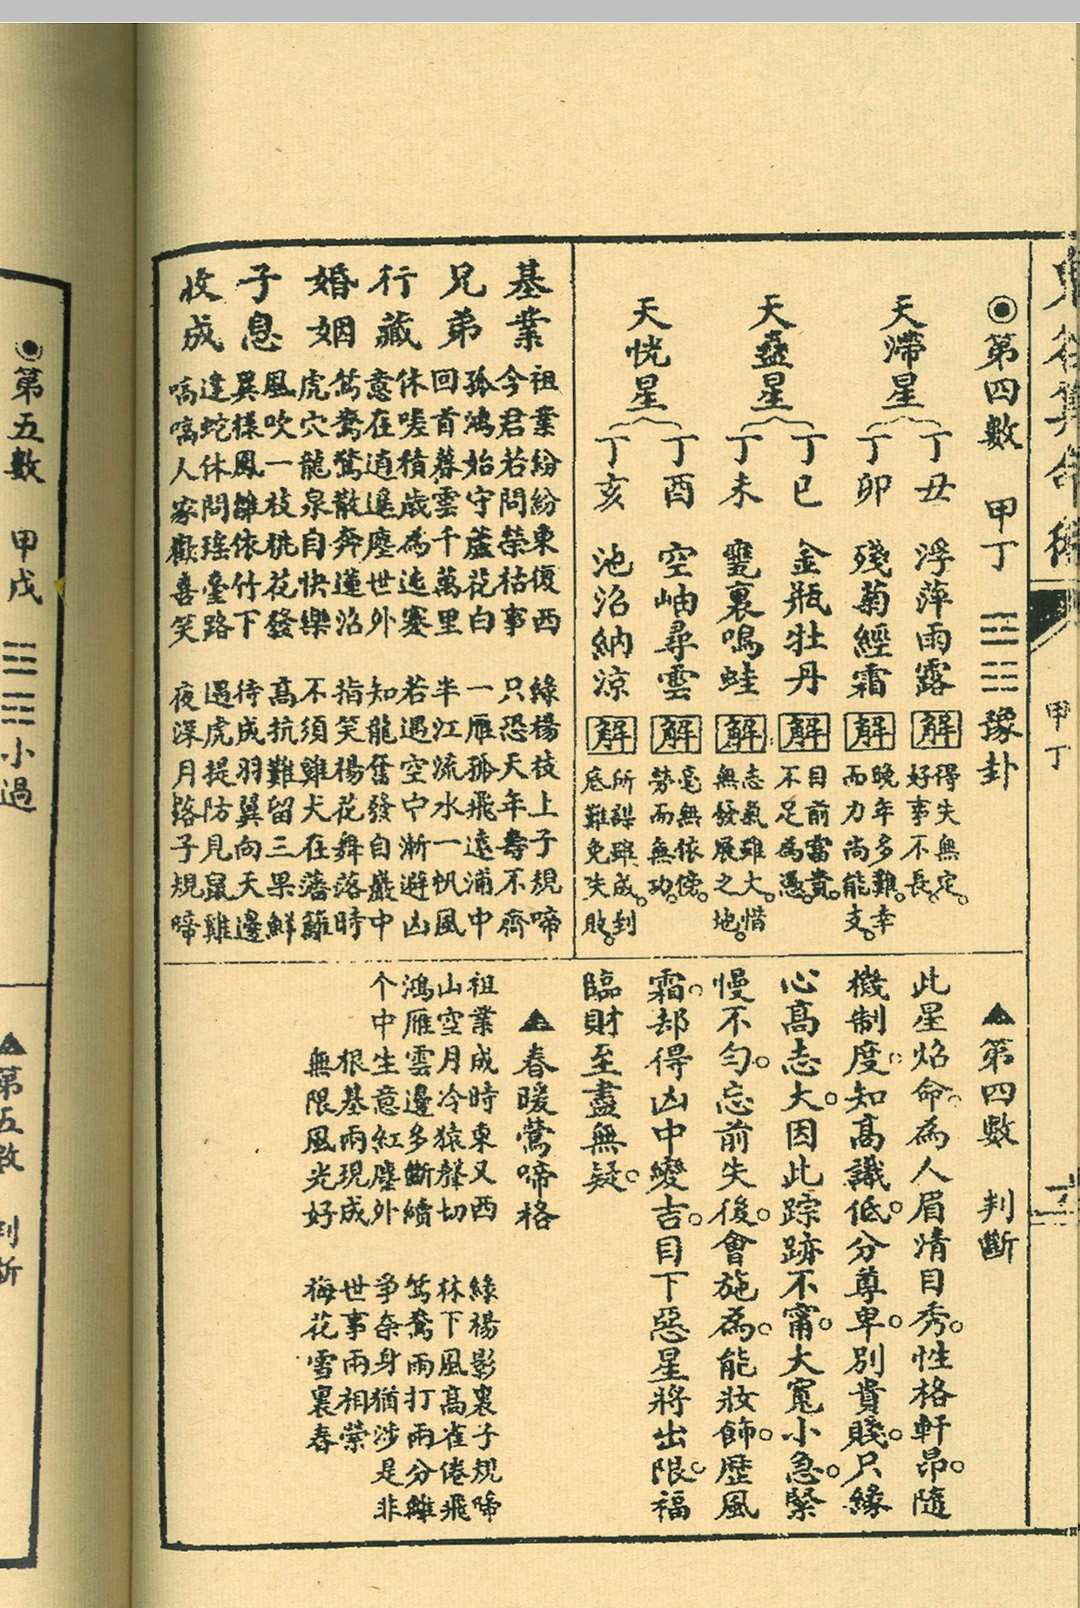 第四數 甲丁 豫卦
天滯星
丁丑 浮萍雨露 解 得失無定。好事不長。
丁卯 殘菊經霜 解 晚年多難。幸而力尚能支。
天盝星
丁巳 金瓶牡丹 解 目前富貴。不足為憑。
丁未 甕裏鳴蛙 解 志氣雖大。惜無發展之地。
天恍星
丁酉 空岫尋雲 解 毫無依傍。勞而無功。
丁亥 池沼納涼 解 所謀雖成。到底難免失敗。
基業
祖業紛紛東復西 綠楊枝上子規啼
今君若問榮枯事 只恐天年壽不齊
兄弟
孤鴻始守蘆花白 一雁孤飛遠浦中
回首暮雲千萬里 半江流水一帆風
行藏
休嗟積歲為迍蹇 若遇空亡漸避凶
意在逍遙塵世外 知龍奮發自嚴中
婚姻
鴛鴦驚散奔蓮沼 指笑楊花舞落時
虎穴龍泉自快樂 不須雞犬在藩籬
子息
風吹一枝桃花發 高抗難留三果鮮
異樣鳳雛依竹下 待成羽翼向天邊
收成
逢蛇休問瑤臺路 遇虎提防見鼠雞
嗃嗃人家歡喜笑 夜深月路子規啼
▲第四數 判斷
此星焰命。為人眉清目秀。性格軒昂。隨
機制度。知高識低。分尊卑。別貴賤。只緣
心高志大。因此踪跡不甯。大寬小急。緊
慢不勻。忘前失後。會施為。能妝飾。歷風
霜。却得凶中變吉。目下惡星將出限。福
臨財至盡無疑。
▲春暖鶯啼格
祖業成時東又西 綠楊影裏子規啼
山空月冷猿聲切 林下風高雀倦飛
鴻雁雲邊多斷續 鴛鴦雨打兩分離
个中生意紅塵外 爭奈身猶涉是非
根基兩現成 世事兩相縈
無限風光好 梅花雪裏春
甲丁
第五數 甲戊 小過
▲第五數 判斷